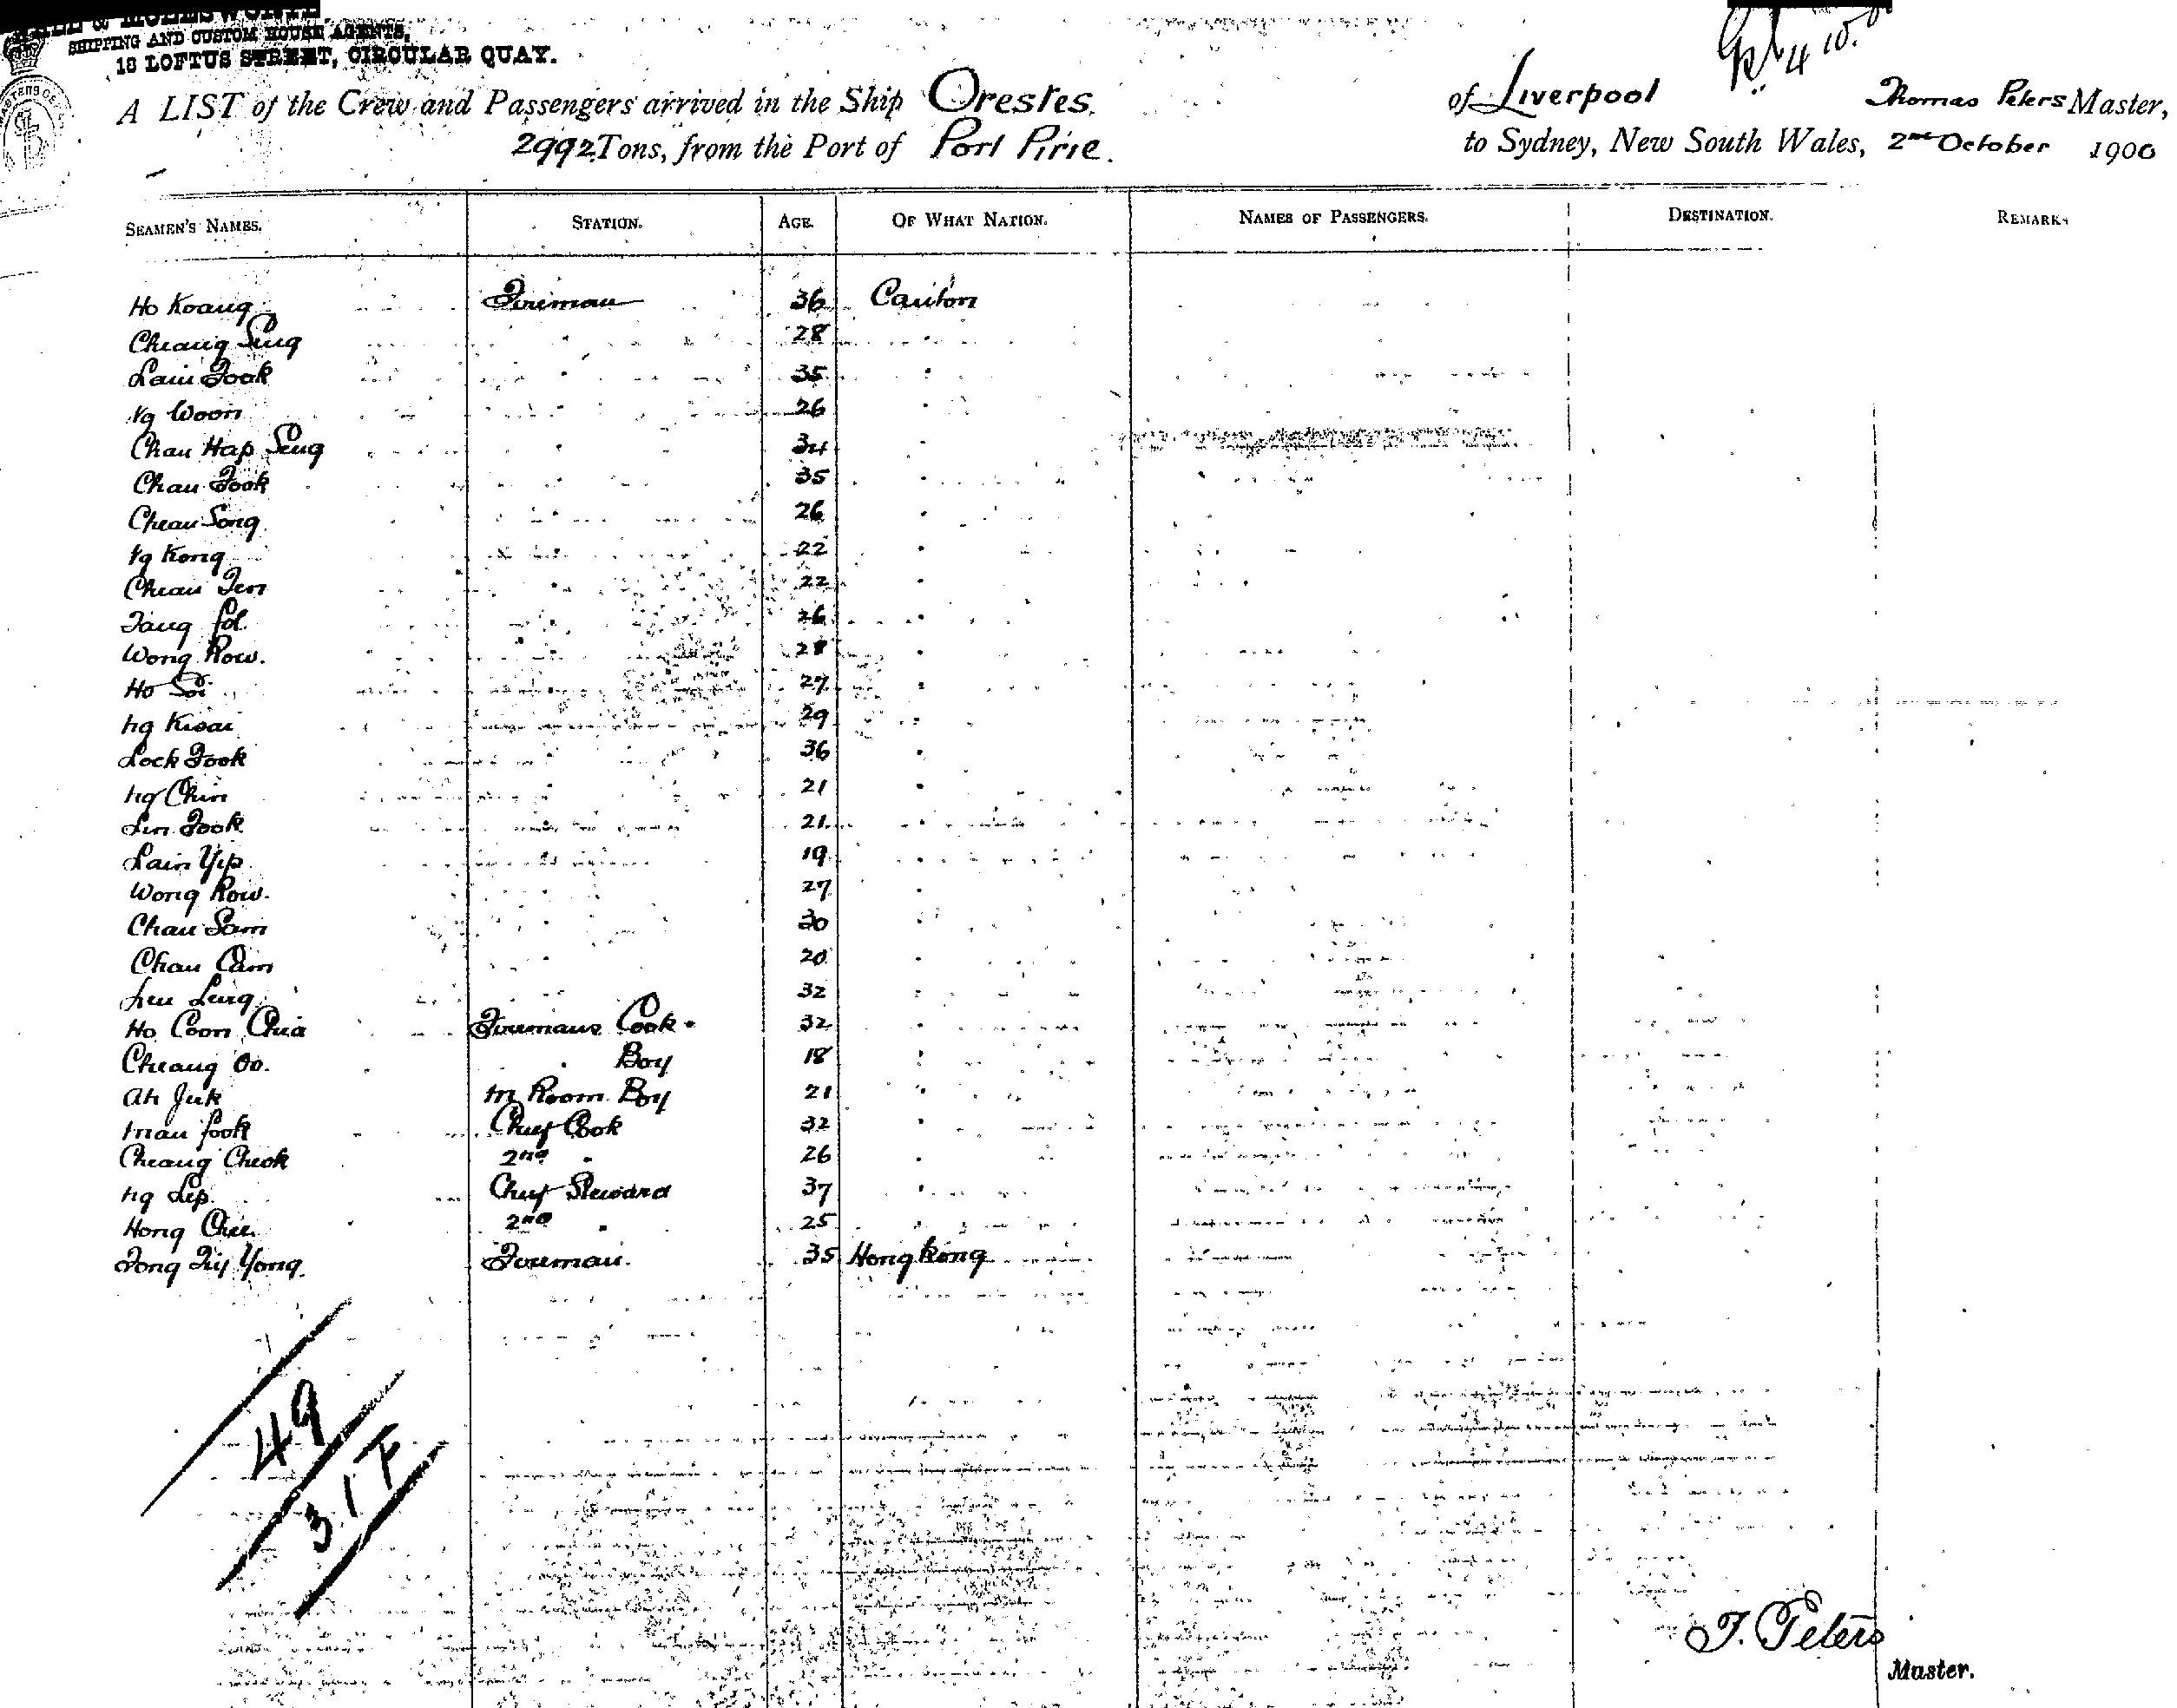 & MOLESWORTH
SHIPPING AND CUSTOM HOUSE AGENTS,
18 LOFTUS STREET, CIRCULAR QUAY.
A LIST of the Crew and Passengers arrived in the Ship Orestes. of Liverpool Thomas Peters Master,
2992 Tons, from the Port of Port Pirie. to Sydney, New South Wales, 2nd October 1900
SEAMEN'S NAMES. STATION. AGE. OF WHAT NATION. NAMES OF PASSENGERS. DESTINATION. REMARKS
Ho Koang Fireman 36 Canton
Cheang Sing 28 "
Lain Fook 35 "
Ng Woon 26 "
Chau Hap Seng 34 "
Chau Fook 35 "
Cheau Song 26 "
Ng Kong 22 "
Cheau Fen 22 "
Fang Sol. 26 "
Wong Row. 28 "
Ho Soi 27 "
Ng Kwai 29 "
Lock Fook 36 "
Ng Chin 21 "
Lin Fook 21 "
Lain Yip 19 "
Wong Row. 27 "
Chau Sam 30 "
Chau Cam 20 "
Leu Leng 32 "
Ho Coon Chia Firemans Cook 32 "
Cheang Oo. " Boy 18 "
Ah Juk M Room Boy 21 "
Man Fook Chief Cook 32 "
Cheang Cheok 2nd " 26 "
Ng Lep. Chief Steward 37 "
Hong Chee. 2nd " 25 "
Fong Yong. Fireman. 35 Hong Kong
49
31 F
T. Peters
Master.